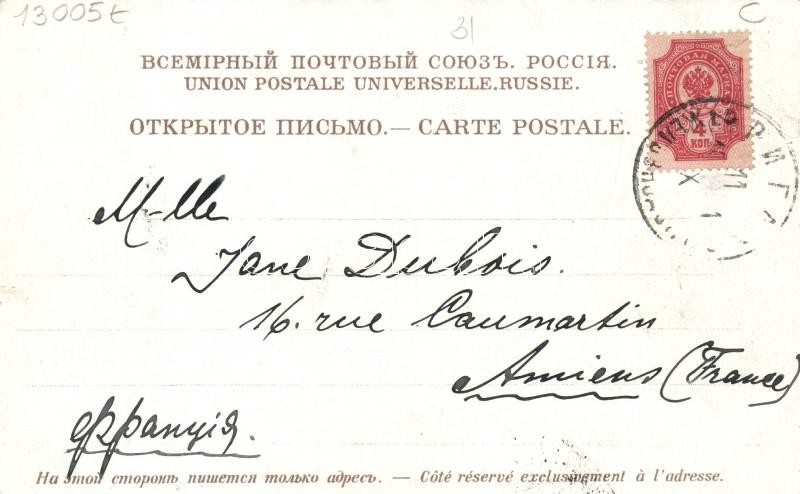 13005t
31
C
ВСЕМІРНЫЙ ПОЧТОВЫЙ СОЮЗЪ. РОССІЯ.
UNION POSTALE UNIVERSELLE.RUSSIE.
ОТКРЫТОЕ ПИСЬМО.— CARTE POSTALE.
ПОЧТОВАЯ МАРКА
4
КОП.
РИГА
M-lle
Jane Dubois.
16. rue Caumartin
Amiens (France)
Франція.
На этой сторонѣ пишется только адресъ. — Côté réservé exclusivement à l'adresse.